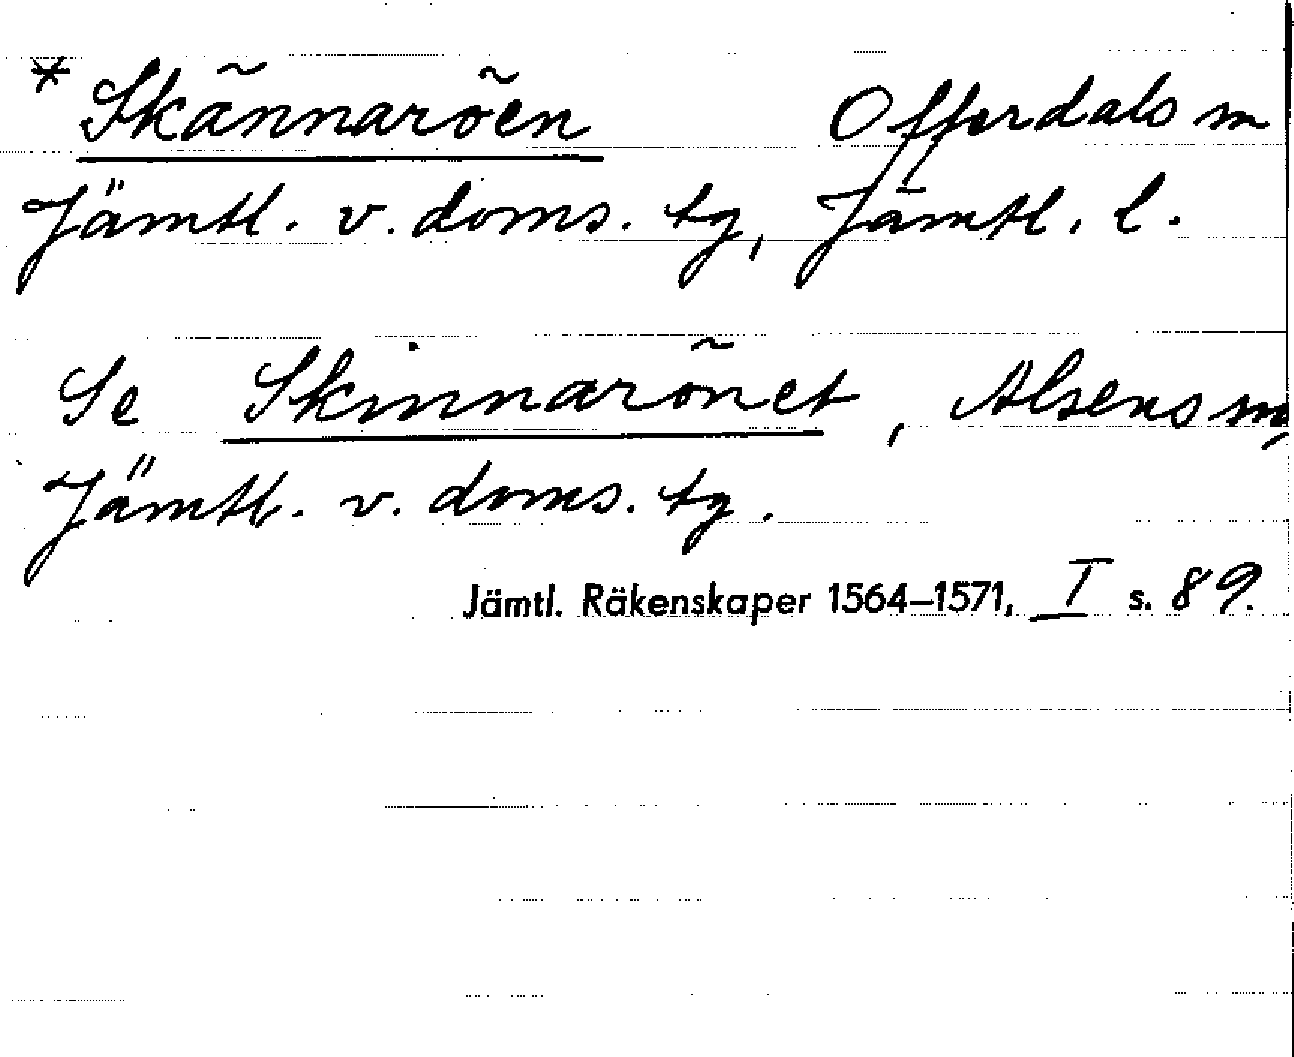 * Skännaröen Offerdals sn
Jämtl. v. doms. tg, Jämtl. l.
Se Skinnarönet, Alsens sn,
Jämtl. v. doms. tg.
Jämtl. Räkenskaper 1564–1571, I s. 89.